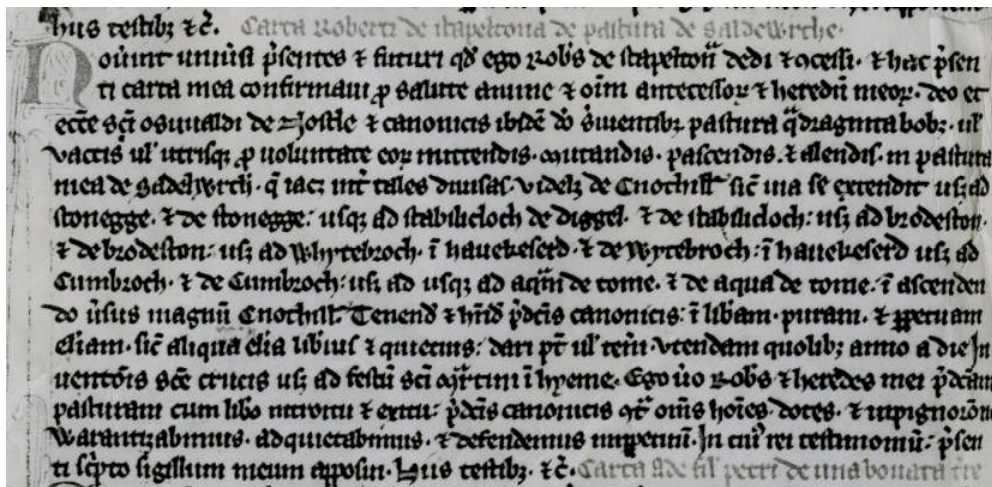 hiis testib; ⁊ c̄. Carta Roberti de stapeltona de pastura de saldewrthe.
Nou̔int uniu̔si p̔sentes ⁊ futuri qđ ego Rob̔s de stapeltoñ dedi ⁊ ꝯcessi. ⁊ hac p̔sen
ti carta mea confirmaui ꝓ salute anime ⁊ oīm antecessoꝝ ⁊ heredū meoꝝ. deo et
ecc̄e sc̄i osuualdi de Nostłe ⁊ canonicis ibidē do̅ s̔uientibꝫ pasturā qͣdraginta bobꝫ. ul̔
vaccis ul̔ utrisqꝫ ꝓ uoluntate eoꝝ mittendis. mutandis. pascendis. ⁊ alendis. in pastura
mea de sadelwrth. q̄ iacꝫ int̔ tales diuisas. videlꝫ de Cnothilł sic̄ uia se extendit usꝫ ad
stonegge. ⁊ de stonegge: usqꝫ ad stabilicloch de diggel. ⁊ de stabilicloch: usꝫ ad brodeston.
⁊ de brodeston: usꝫ ad Whytebroch. ī hauekeserd. ⁊ de Wytebroch: ī hauekeserd usꝫ ad
Cumbroch. ⁊ de Cumbroch: usꝫ ad usqꝫ ad aqͣm de tome. ⁊ de aqua de tome. ī ascenden
do ṽsus magnū Cnothilł. Tenenđ ⁊ hñđ p̔dc̄is canonicis: ī lib̔am. puram. ⁊ ꝑpetuam
elīam. sic̄ aliqua elīa lib̔ius ⁊ quietius: dari pt̄ ul̔ ten̔i. vtendam quolibꝫ anno a die In
uentōis sc̄e crucis usꝫ ad festū sc̄i mͣrtini ī hyeme. Ego ũo Rob̔s ⁊ heredes mei p̔dcām
pasturam cum lib̔o introitu ⁊ exitu: p̔dc̄is canonicis ꝯtͣ om̄s hoīes. dotes. ⁊ inpignorōne
Warantizabimus. adquietabimus. ⁊ defendemus inꝑpetuū. In cui̔ rei testimoniū: p̔sen
ti sc̔pto sigillum meum apposui. Hiis testibꝫ. ⁊ c̄. Carta Ade fil̔ petri de una bouata t̔re